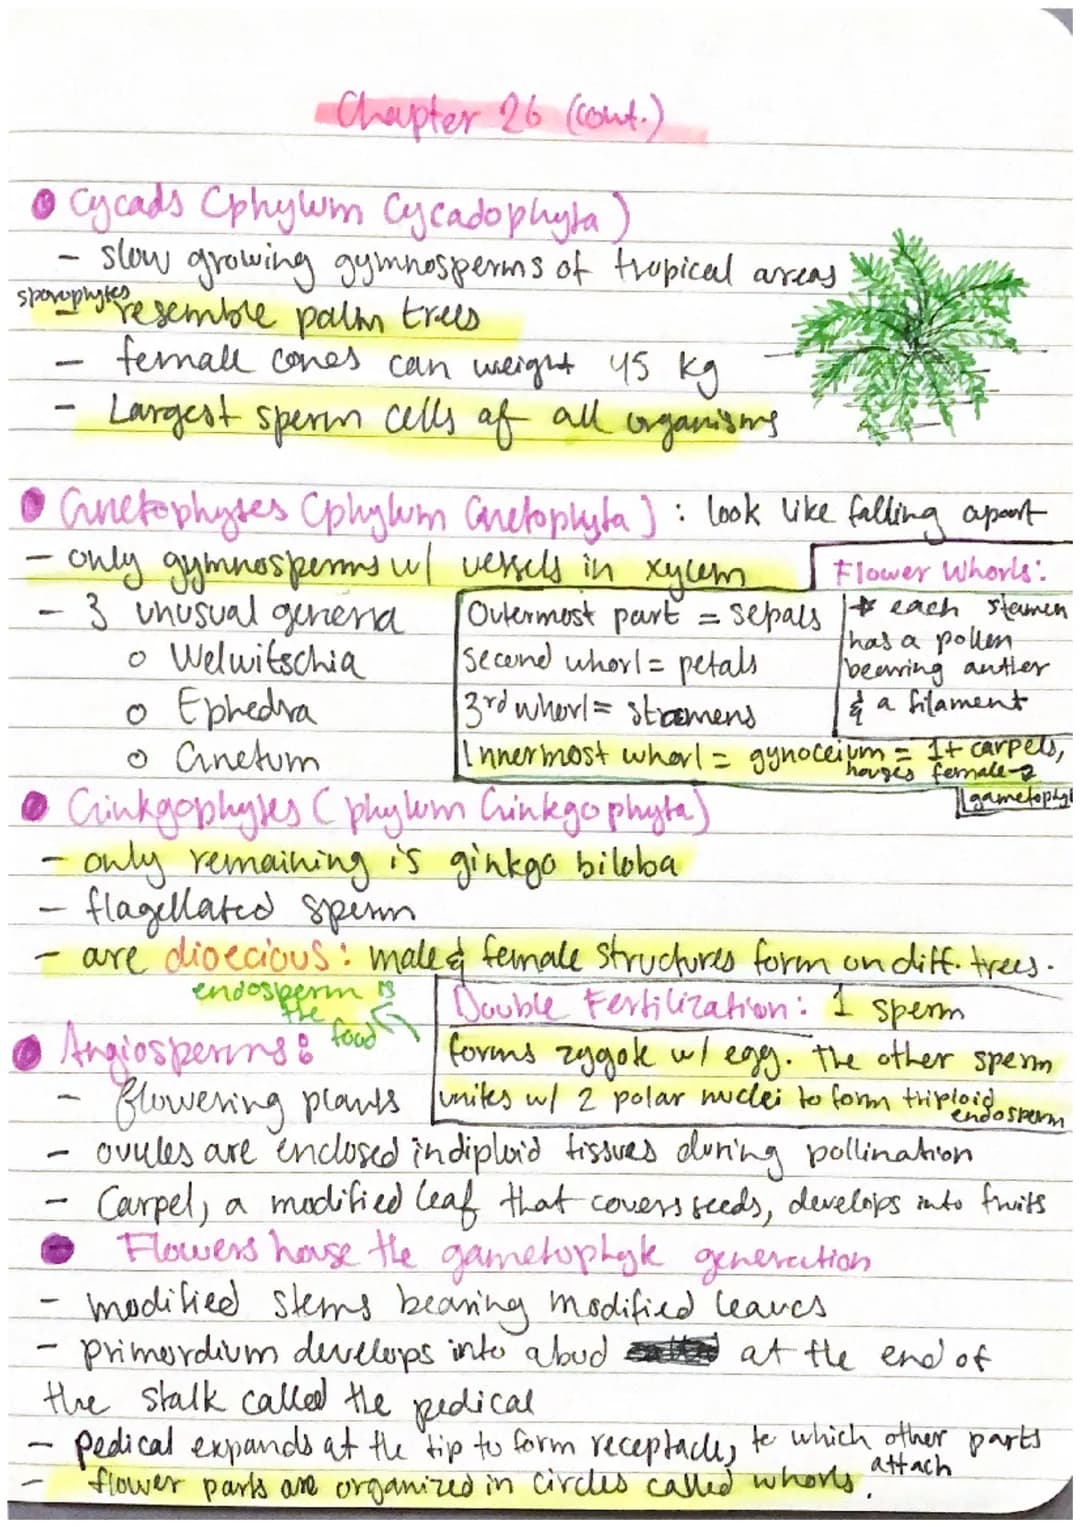 Chapter 26 (cont.)
Cycads (phylum Cycadophyta)
- slow growing gymnosperms of tropical areas
sporophytes
- resemble palm trees
- female cones can weight 45 kg
- Largest sperm cells of all organisms
Gnetophytes (phylum Gnetophyta) : look like falling apart
- only gymnosperms w/ vessels in xylem
- 3 unusual generra
o Welwitschia
o Ephedra
o Gnetum
Flower Whorls:
Outermost part = sepals
second whorl = petals
3rd whorl = stamens
Innermost whorl = gynoceium = 1+ carpels,
houses female
gametophyt
* each stamen
has a pollen
bearing anther
& a filament
Ginkgophytes (phylum Ginkgophyta)
- only remaining is ginkgo biloba
- flagellated sperm
- are dioecious : male & female structures form on diff. trees.
endosperm is
the
food
Double Fertilization : 1 sperm
forms zygote w/ egg. the other sperm
unites w/ 2 polar nuclei to form triploid
endosperm
Angiosperms:
- flowering plants
- ovules are enclosed in diploid tissues during pollination
- Carpel, a modified leaf that covers seeds, develops into fruits
Flowers house the gametophyte generation
- modified stems bearing modified leaves
- primordium develops into a bud at the end of
the stalk called the pedical
- pedical expands at the tip to form receptacle, to which other parts
attach
- flower parts are organized in circles called whorls.